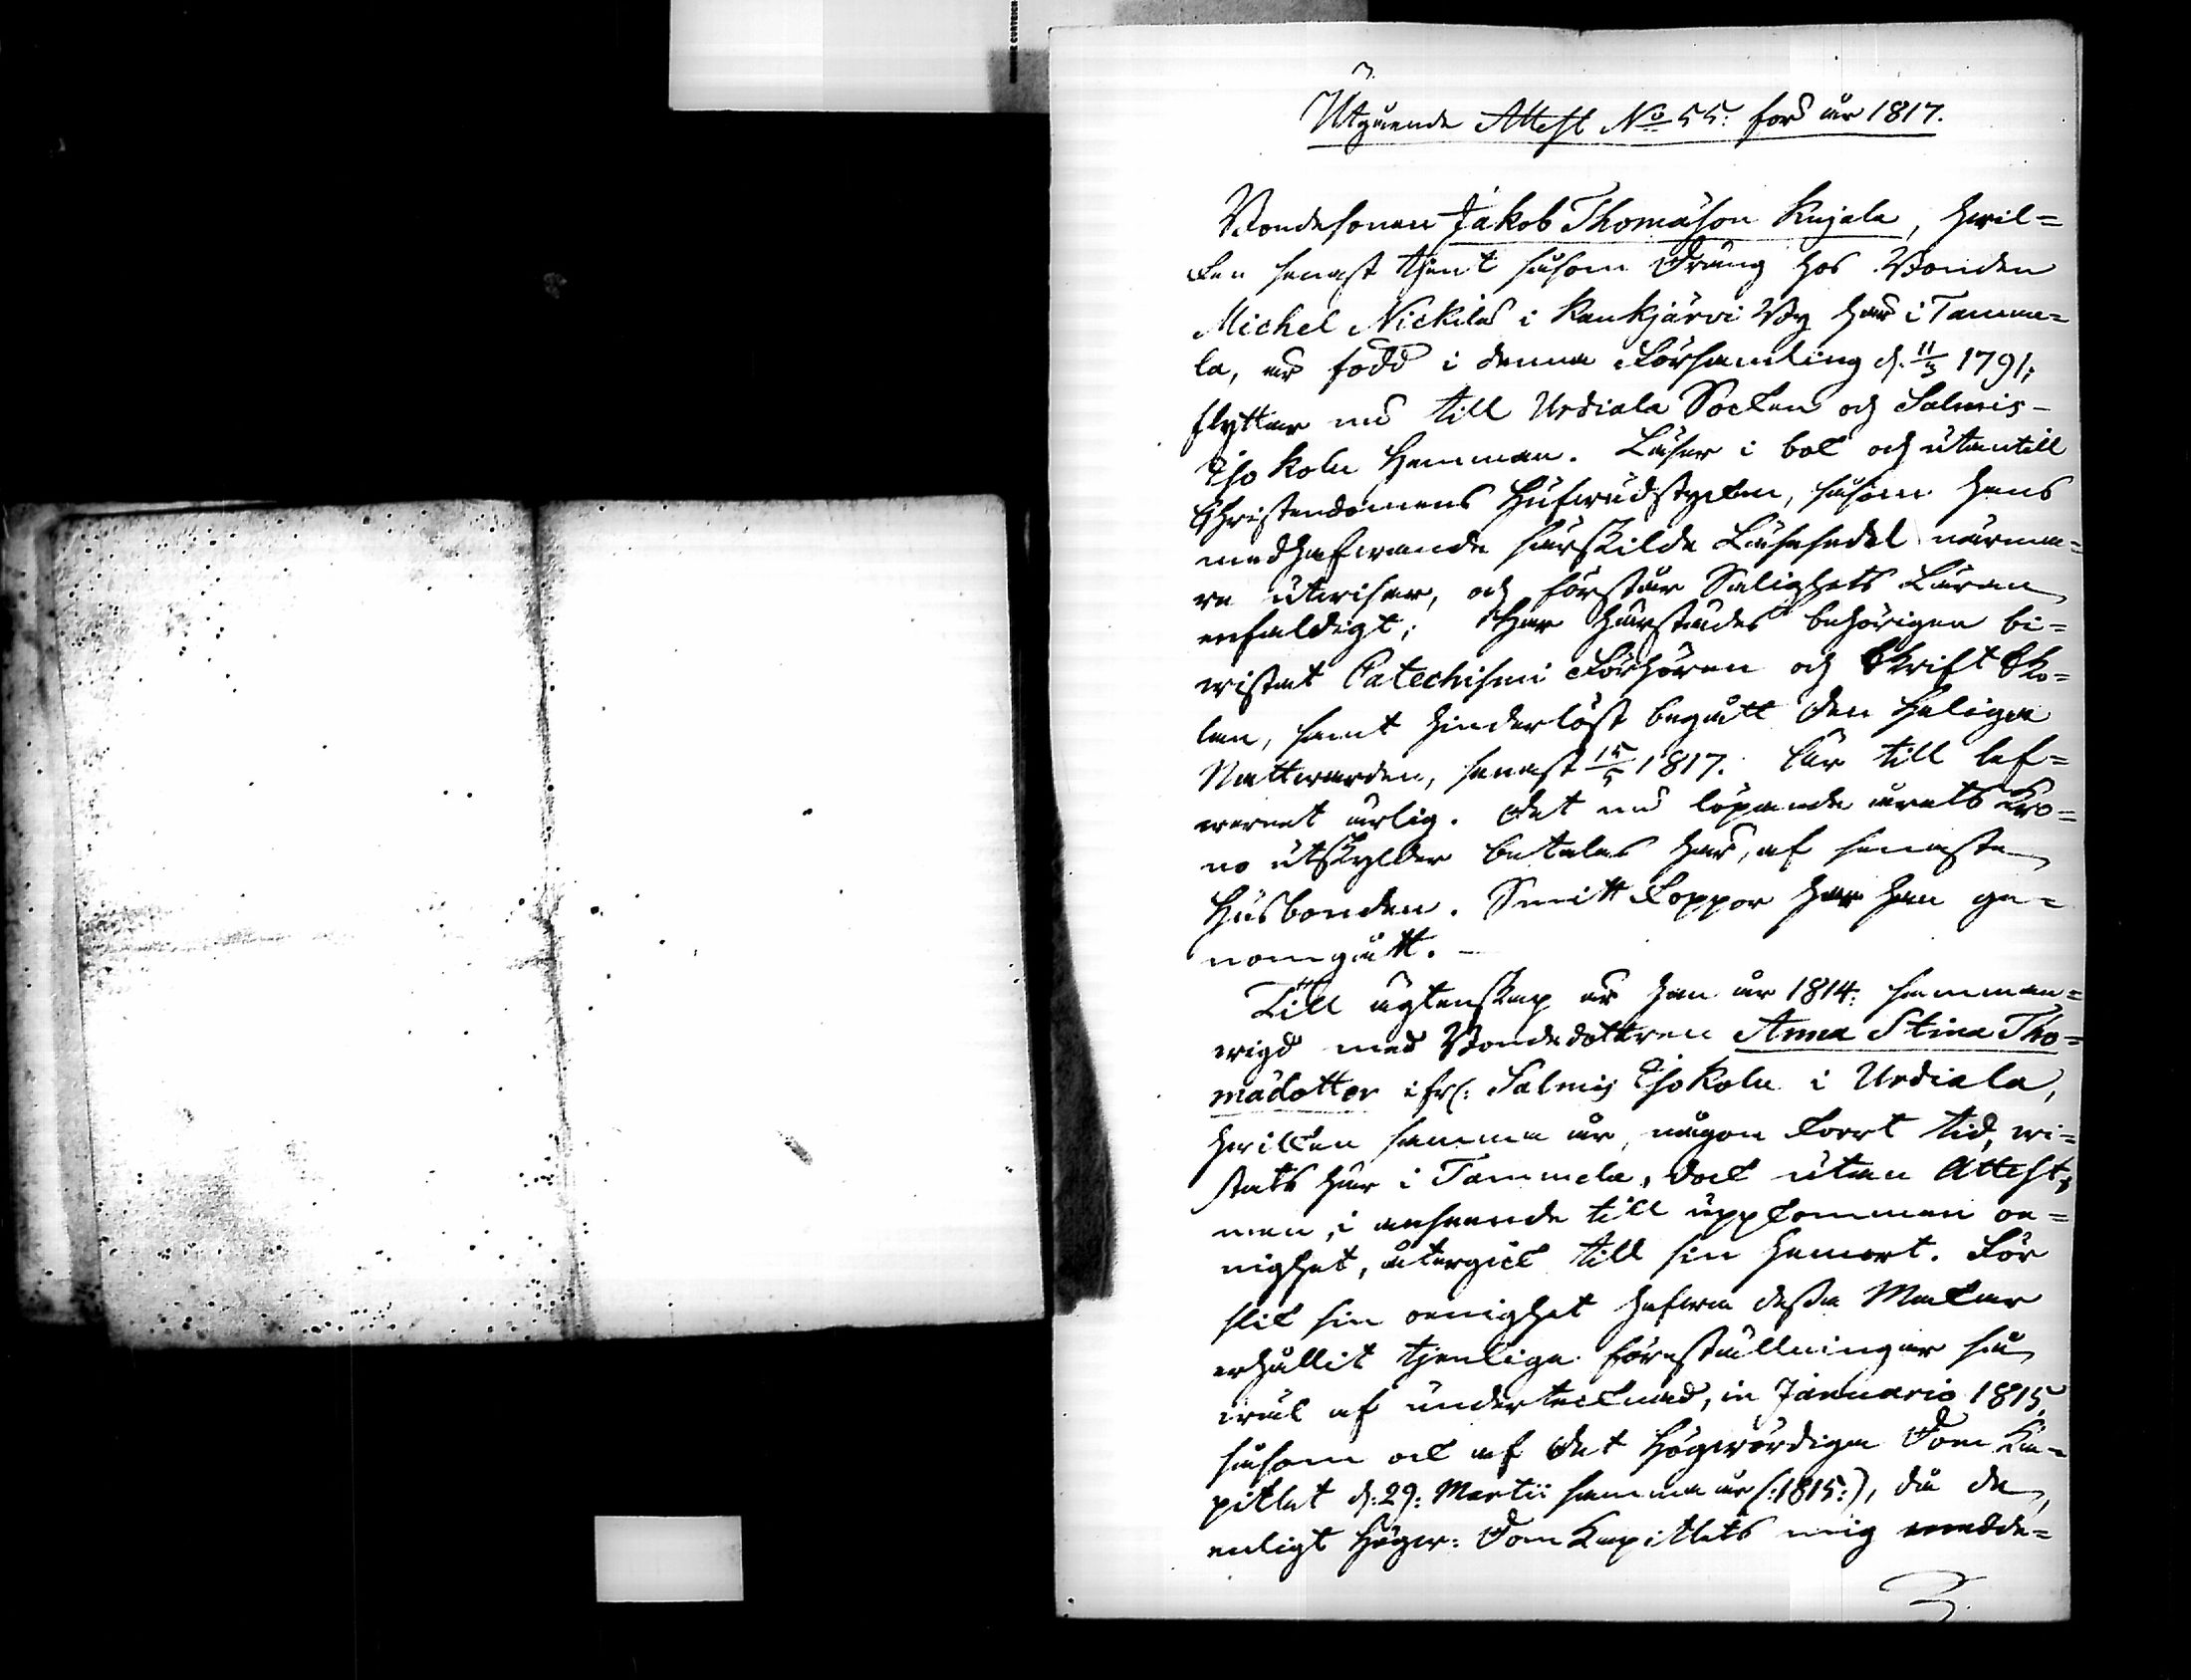 Utgående Attest No 55. för år 1817.
Bondesonen Jakob Thomasson Kujala, hwil=
ken senast tjent såsom Dräng hos Bonden
Michel Nickilä i Kaukjärvi By här i Tamme=
la, är född i denna Församling d. 11/3 1791,
flyttar nu till Urdiala Socken och Salmis-
Iso Kola Hemman. Läser i bok och utantill
Christendomens Hufwudstycken, såsom hans
medhafwande särskilde Läsesedel närma=
re utwisar, och förstår Salighets Läran
enfaldigt; Har härstädes behörigen bi=
wistat Catechismi Förhören och Skrift Sko=
lan, samt hinderlöst begått Den Heliga
Nattwarden, senast 15/5 1817. Är till lef=
wernet ärlig. Det nu löpande årets Kro=
no utskylder betalas här, af senaste
Husbonden. Smitt Koppor har han ge=
nomgått. –
Till ägtenskap är han år 1814. samman=
wigd med Bondedottren Anna Stina Tho=
mädotter ifr. Salmis Iso Kola i Urdiala,
hwilken samma år, någon kort tid, wi=
stats här i Tammela, dock utan Attest,
men, i anseende till uppkommen oe=
nighet, återgick till sin hemort. För
slik sin oenighet hafwa dessa Makar
erhållit tjenliga föreställningar så
wäl af undertecknad, in Januario 1815,
såsom ock af Det Högwördiga Dom Ka=
pitlet d. 29. Martii samma år (:1815:), då de,
enligt Högw: Dom Kapitlets mig medde=